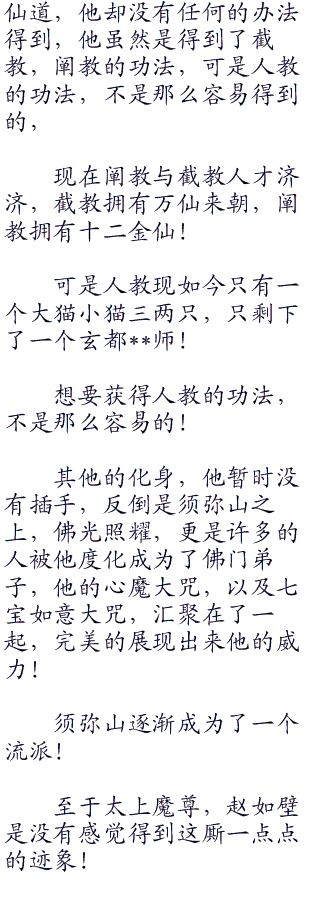 仙道，他却没有任何的办法
得到，他虽然是得到了截
教，阐教的功法，可是人教
的功法，不是那么容易得到
的，
现在阐教与截教人才济
济，截教拥有万仙来朝，阐
教拥有十二金仙！
可是人教现如今只有一
个大猫小猫三两只，只剩下
了一个玄都**师！
想要获得人教的功法，
不是那么容易的！
其他的化身，他暂时没
有插手，反倒是须弥山之
上，佛光照耀，更是许多的
人被他度化成为了佛门弟
子，他的心魔大咒，以及七
宝如意大咒，汇聚在了一
起，完美的展现出来他的威
力！
须弥山逐渐成为了一个
流派！
至于太上魔尊，赵如壁
是没有感觉得到这厮一点点
的迹象！